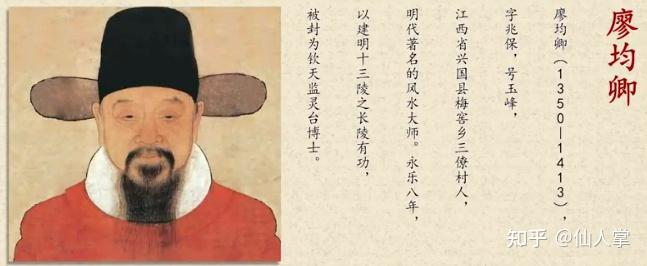 廖均卿
廖均卿（1350—1413），
字兆保，号玉峰，
江西省兴国县梅窖乡三僚村人，
明代著名的风水大师。永乐八年，
以建明十三陵之长陵有功，
被封为钦天监灵台博士。
知乎 @仙人掌